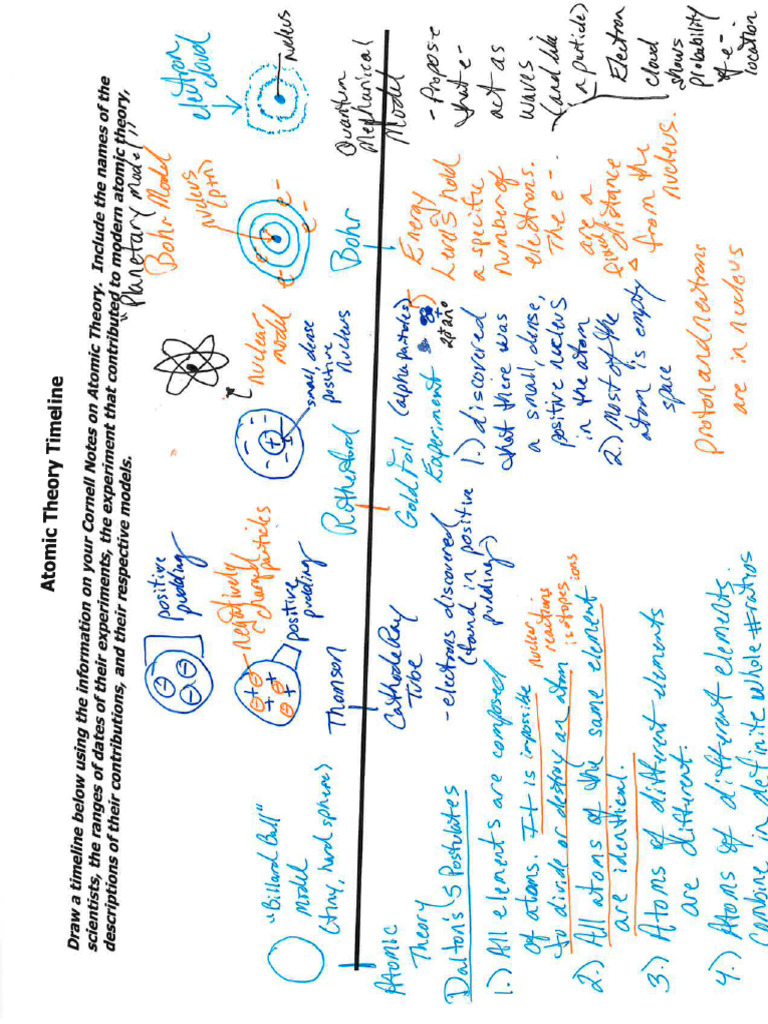 Atomic Theory Timeline
Draw a timeline below using the information on your Cornell Notes on Atomic Theory. Include the names of the
scientists, the ranges of dates of their experiments, the experiment that contributed to modern atomic theory,
descriptions of their contributions, and their respective models.
"Billard Ball"
Model
(tiny, hard sphere)
Atomic
Theory
Dalton's 5 Postulates
1.) All elements are composed
of atoms. It is impossible
to divide or destroy an atom
nuclear
reactions
isotopes ions
2.) All atoms of the same element
are identical.
3.) Atoms of different elements
are different.
4.) Atoms of different elements
combine in definite whole # ratios
positive
pudding
negatively
charged
particles
positive
pudding
Thomson
Cathode Ray
Tube
- electrons discovered
(found in positive
pudding)
nuclear
model
small, dense
positive
nucleus
Rotherford
Gold Foil (alpha particles)
Experiment
1.) discovered
that there was
a small, dense,
positive nucleus
in the atom
2.) most of the
atom is empty
space
proton and neutrons
are in nucleus
"Planetary model"
Bohr Model
nucleus
(p+n)
e- e- e- e-
Bohr
Energy
Levels hold
a specific
number of
electrons.
The e-
are a
fixed distance
from the
nucleus.
electron
cloud
nucleus
Quantum
Mephunical
Model
- Propose
that e-
act as
waves
(and like
a particle)
Electron
cloud
shows
probability
of e-
location